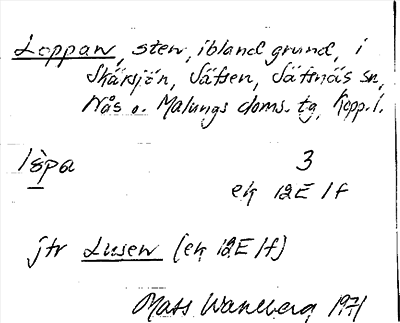 Loppan, sten, ibland grund, i
Skärsjön, Säfsen, Säfsnäs sn,
Nås o. Malungs doms. tg, Kopp. l.
lòpa 3
ek 12E 1f
jtr Lusen (ek 12E 1f)
Mats Wahlberg 1971